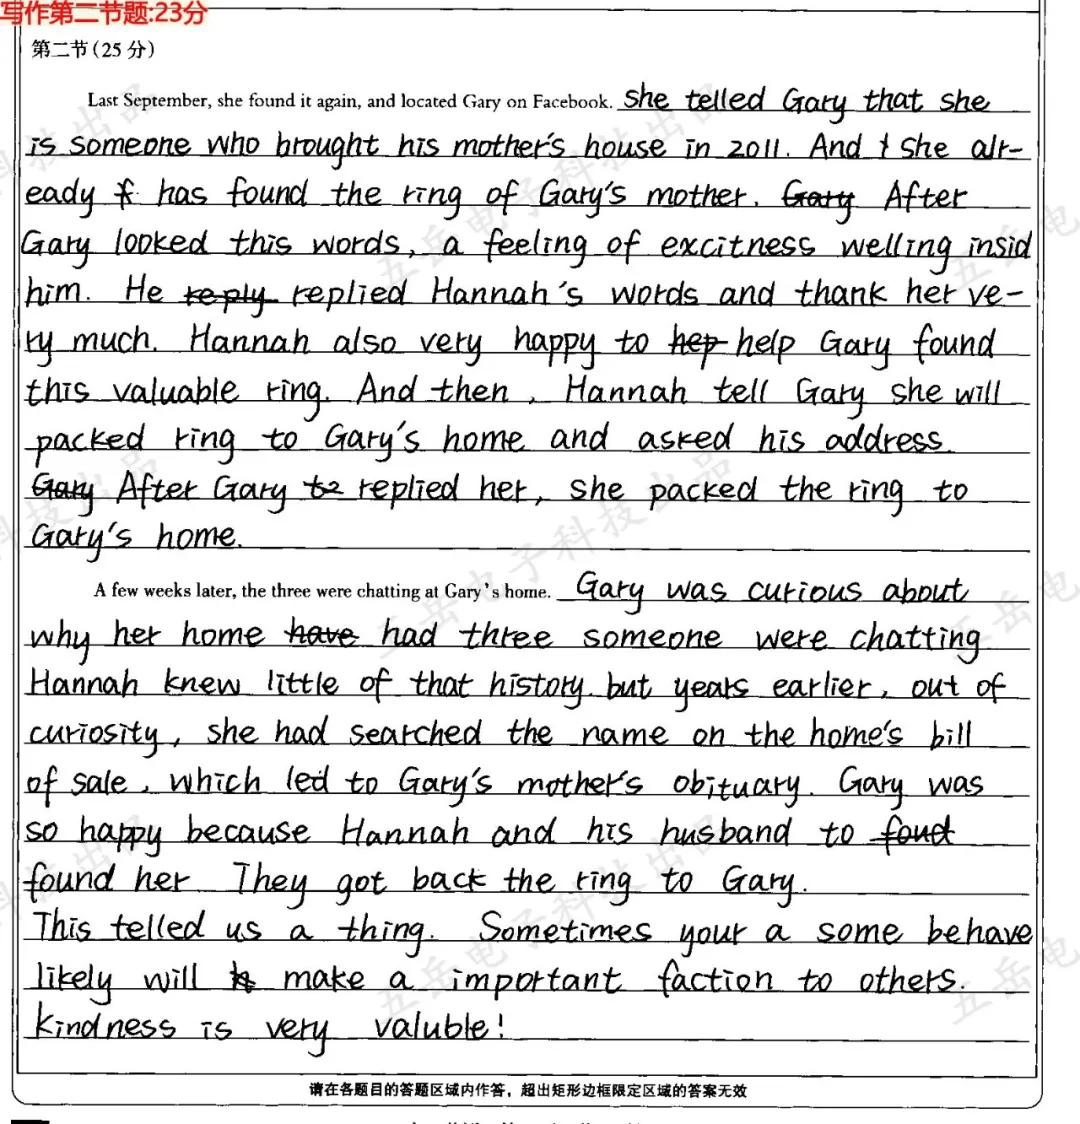 写作第二节题:23分
第二节(25分)
Last September, she found it again, and located Gary on Facebook. she telled Gary that she
is someone who brought his mother's house in 2011. And she alr-
eady has found the ring of Gary's mother. Gary After
Gary looked this words, a feeling of excitness welling insid
him. He reply replied Hannah's words and thank her ve-
ry much. Hannah also very happy to hep help Gary found
this valuable ring. And then, Hannah tell Gary she will
packed ring to Gary's home and asked his address.
Gary After Gary to replied her, she packed the ring to
Gary's home.
A few weeks later, the three were chatting at Gary's home. Gary was curious about
why her home have had three someone were chatting
Hannah knew little of that history. but years earlier, out of
curiosity, she had searched the name on the home's bill
of sale, which led to Gary's mother's obituary. Gary was
so happy because Hannah and his husband to foud
found her They got back the ring to Gary.
This telled us a thing. Sometimes your a some behave
likely will make a important faction to others.
kindness is very valuble!
请在各题目的答题区域内作答，超出矩形边框限定区域的答案无效